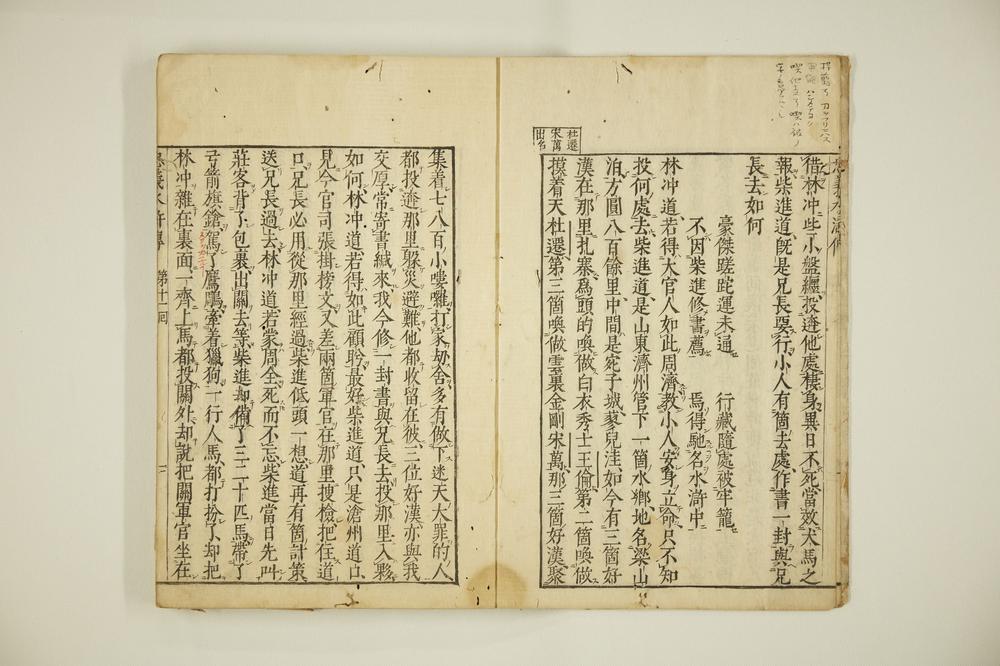 借林冲些小盤纏投逩他處棲身異日不死當效犬馬之
報柴進道旣是兄長要行小人有箇去處作書一封與兄
長去如何
豪傑蹉跎運未通　行藏隨處被牢籠
不因柴進修書薦　焉得馳名水滸中
林冲道若得大官人如此周濟教小人安身立命只不知
投何處去柴進道是山東濟州管下一箇水鄉地名梁山
泊方圓八百餘里中間是宛子城蓼兒洼如今有三箇好
漢在那里扎寨爲頭的喚做白衣秀士王倫第二箇喚做
摸着天杜遷第三箇喚做雲裏金剛宋萬那三箇好漢聚
杜遷
宋萬
出名
集着七八百小嘍囉打家劫舍多有做下迷天大罪的人
都投逩那里躱災避難他都收留在彼三位好漢亦與我
交厚常寄書緘來我今修一封書與兄長去投那里入夥
如何林冲道若得如此顧盻最好柴進道只是滄州道口
見今官司張掛榜文又差兩箇軍官在那里搜檢把住道
口兄長必用從那里經過柴進低頭一想道再有箇計策
送兄長過去林冲道若蒙周全死而不忘柴進當日先叫
莊客背了包裹出關去等柴進却備了三二十匹馬帶了
弓箭旗鎗駕了鷹鵰牽着獵狗一行人馬都打扮了却把
林冲雜在裏面一齊上馬都投關外却說把關軍官坐在
忠義水滸傳　第十一回